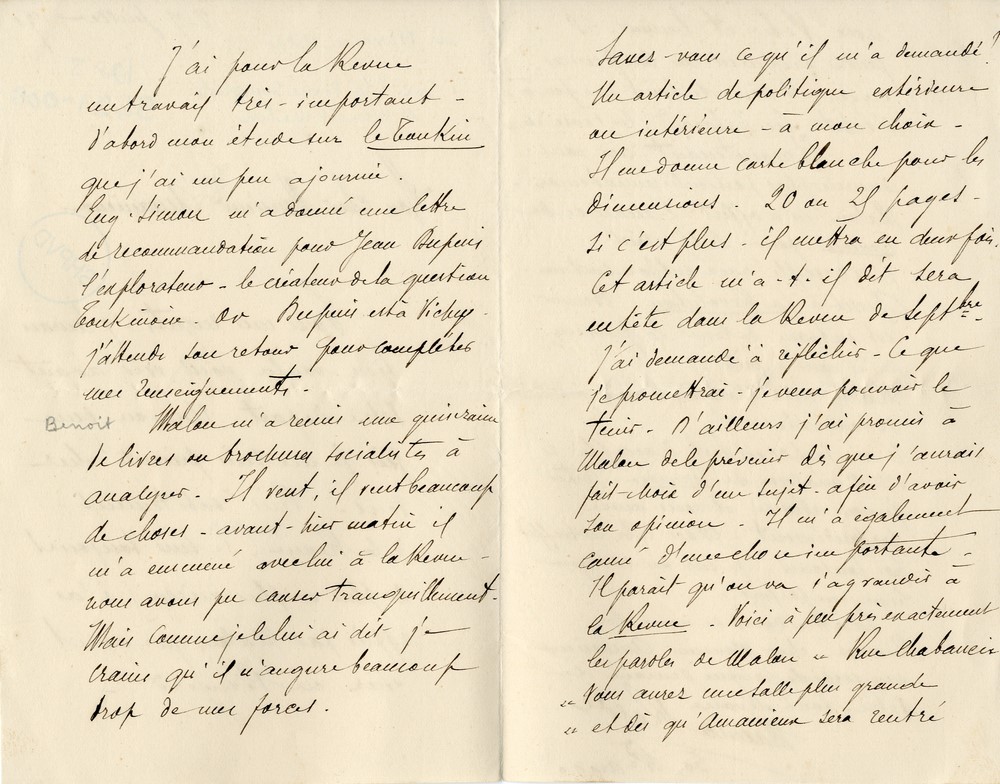 J'ai pour la Revue
un travail très-important -
d'abord mon étude sur le Tonkin
que j'ai un peu ajournée.
Eug. Simon m'a donné une lettre
de recommandation pour Jean Dupuis
l'explorateur - le créateur de la question
Tonkinoise. Or Dupuis est à Vichy -
j'attends son retour pour compléter
mes renseignements -
Benoit
Malon m'a remis une quinzaine
de livres ou brochures socialistes à
analyser - Il veut, il veut beaucoup
de choses - avant-hier matin il
m'a emmené avec lui à la Revue -
nous avons pu causer tranquillement -
Mais comme je le lui ai dit je
crains qu'il n'augure beaucoup
trop de mes forces.
Savez-vous ce qu'il m'a demandé?
Un article de politique extérieure
ou intérieure - à mon choix -
Il me donne carte blanche pour les
dimensions. 20 ou 25 pages -
si c'est plus - il mettra en deux fois.
Cet article m'a-t-il dit sera
en tête dans la Revue de Septbre -
J'ai demandé à réfléchir - Ce que
je promettrai - je veux pouvoir le
tenir - D'ailleurs j'ai promis à
Malon de le prévenir dès que j'aurais
fait choix d'un sujet - afin d'avoir
son opinion - Il m'a également
causé d'une chose importante -
Il paraît qu'on va s'agrandir à
la Revue - Voici à peu près exactement
les paroles de Malon « Rue Chabanais
« Vous aurez une salle plus grande
« et dès qu'Amanieux sera rentré